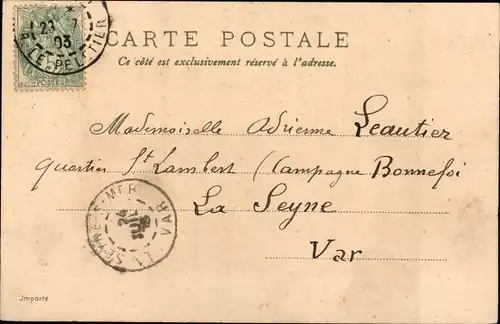 CARTE POSTALE
Ce côté est exclusivement réservé à l'adresse.
23 7
03
LE PELETIER
5
POSTES
Mademoiselle Adrienne Leautier
quartier St Lambert (Campagne Bonnefoi
La Seyne
Var
LA SEYNE-S-MER
24
JUIL
VAR
Importé